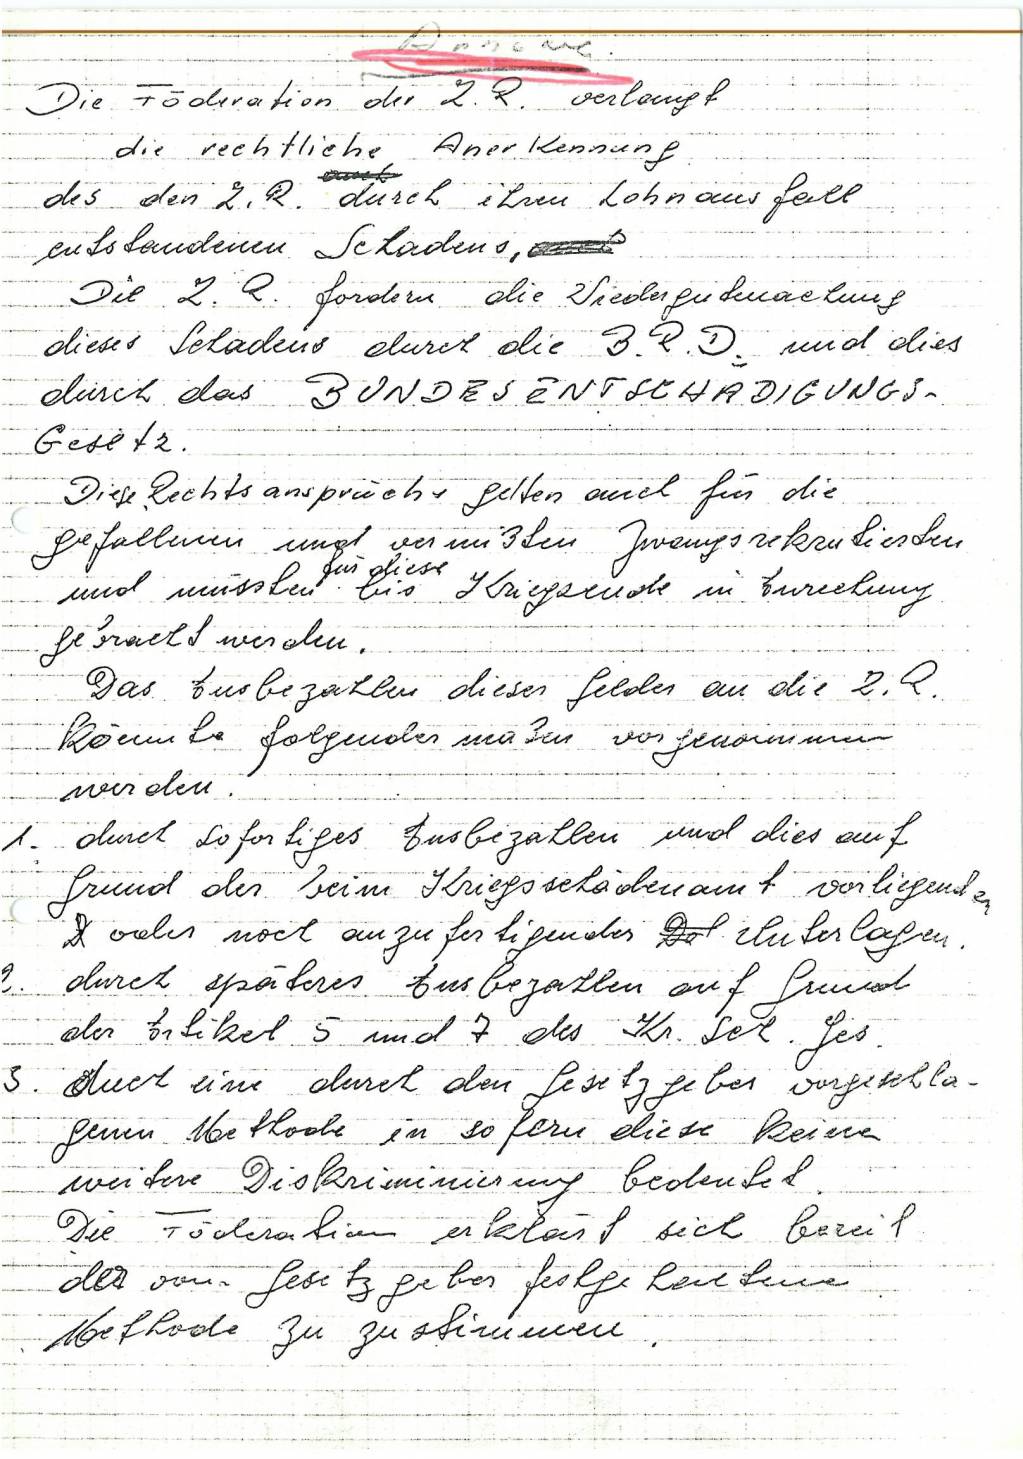 Die Föderation der Z. R. verlangt
die rechtliche Anerkennung
des den Z. R. durch ihren Lohnausfall
entstandenen Schadens,
Die Z. R. fordern die Wiedergutmachung
dieses Schadens durch die B. R. D. und dies
durch das BUNDESENTSCHÄDIGUNGS-
Gesetz.
Diese Rechtsansprüche gelten auch für die
gefallenen und vermißten Zwangsrekrutierten
und müssten für diese bis Kriegsende in Anrechnung
gebracht werden.
Das Ausbezahlen dieser Gelder an die Z. R.
könnte folgendermaßen vorgenommen
werden.
1. durch sofortiges Ausbezahlen und dies auf
Grund der beim Kriegsschädenamt vorliegenden
oder noch anzufertigender Unterlagen.
2. durch späteres Ausbezahlen auf Grund
der Artikel 5 und 7 des Kr. Sch. Ges.
3. duch eine durch den Gesetzgeber vorgeschla-
genen Methode in sofern diese keine
weitere Diskriminierung bedeutet.
Die Föderation erklärt sich bereit
der vom Gesetzgeber festgehaltene
Methode zu zustimmen.